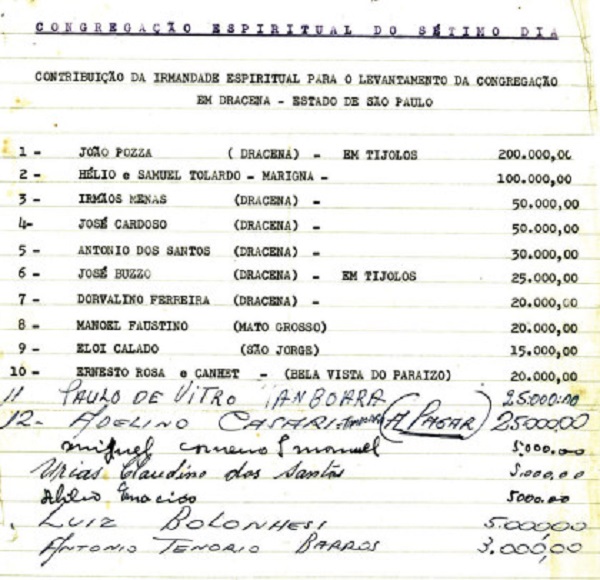 CONGREGAÇÃO ESPIRITUAL DO SÉTIMO DIA
CONTRIBUIÇÃO DA IRMANDADE ESPIRITUAL PARA O LEVANTAMENTO DA CONGREGAÇÃO
EM DRACENA - ESTADO DE SÃO PAULO
1 - JOÃO POZZA ( DRACENA) - EM TIJOLOS 200.000,00
2 - HÉLIO e SAMUEL TOLARDO - MARIGNA - 100.000,00
3 - IRMÃOS MENAS (DRACENA) - 50.000,00
4- JOSÉ CARDOSO (DRACENA) - 50.000,00
5 - ANTONIO DOS SANTOS (DRACENA) - 30.000,00
6 - JOSÉ BUZZO (DRACENA) - EM TIJOLOS 25.000,00
7 - DORVALINO FERREIRA (DRACENA) - 20.000,00
8 - MANOEL FAUSTINO (MATO GROSSO) 20.000,00
9 - ELOI CALADO (SÃO JORGE) 15.000,00
10 - ERNESTO ROSA e CANHET - (BELA VISTA DO PARAIZO) 20.000,00
11 PAULO DE VITRO IANBOARA 25.000.00
12- ADELINO CASARI (A PAGAR) 25000,00
miguel manuel 5.000.00
Urias Claudino dos Santos 5.000,00
Abilio 5000.00
LUIZ BOLONHESI 5.000,00
ANTONIO TENORIO BARROS 3.000,00